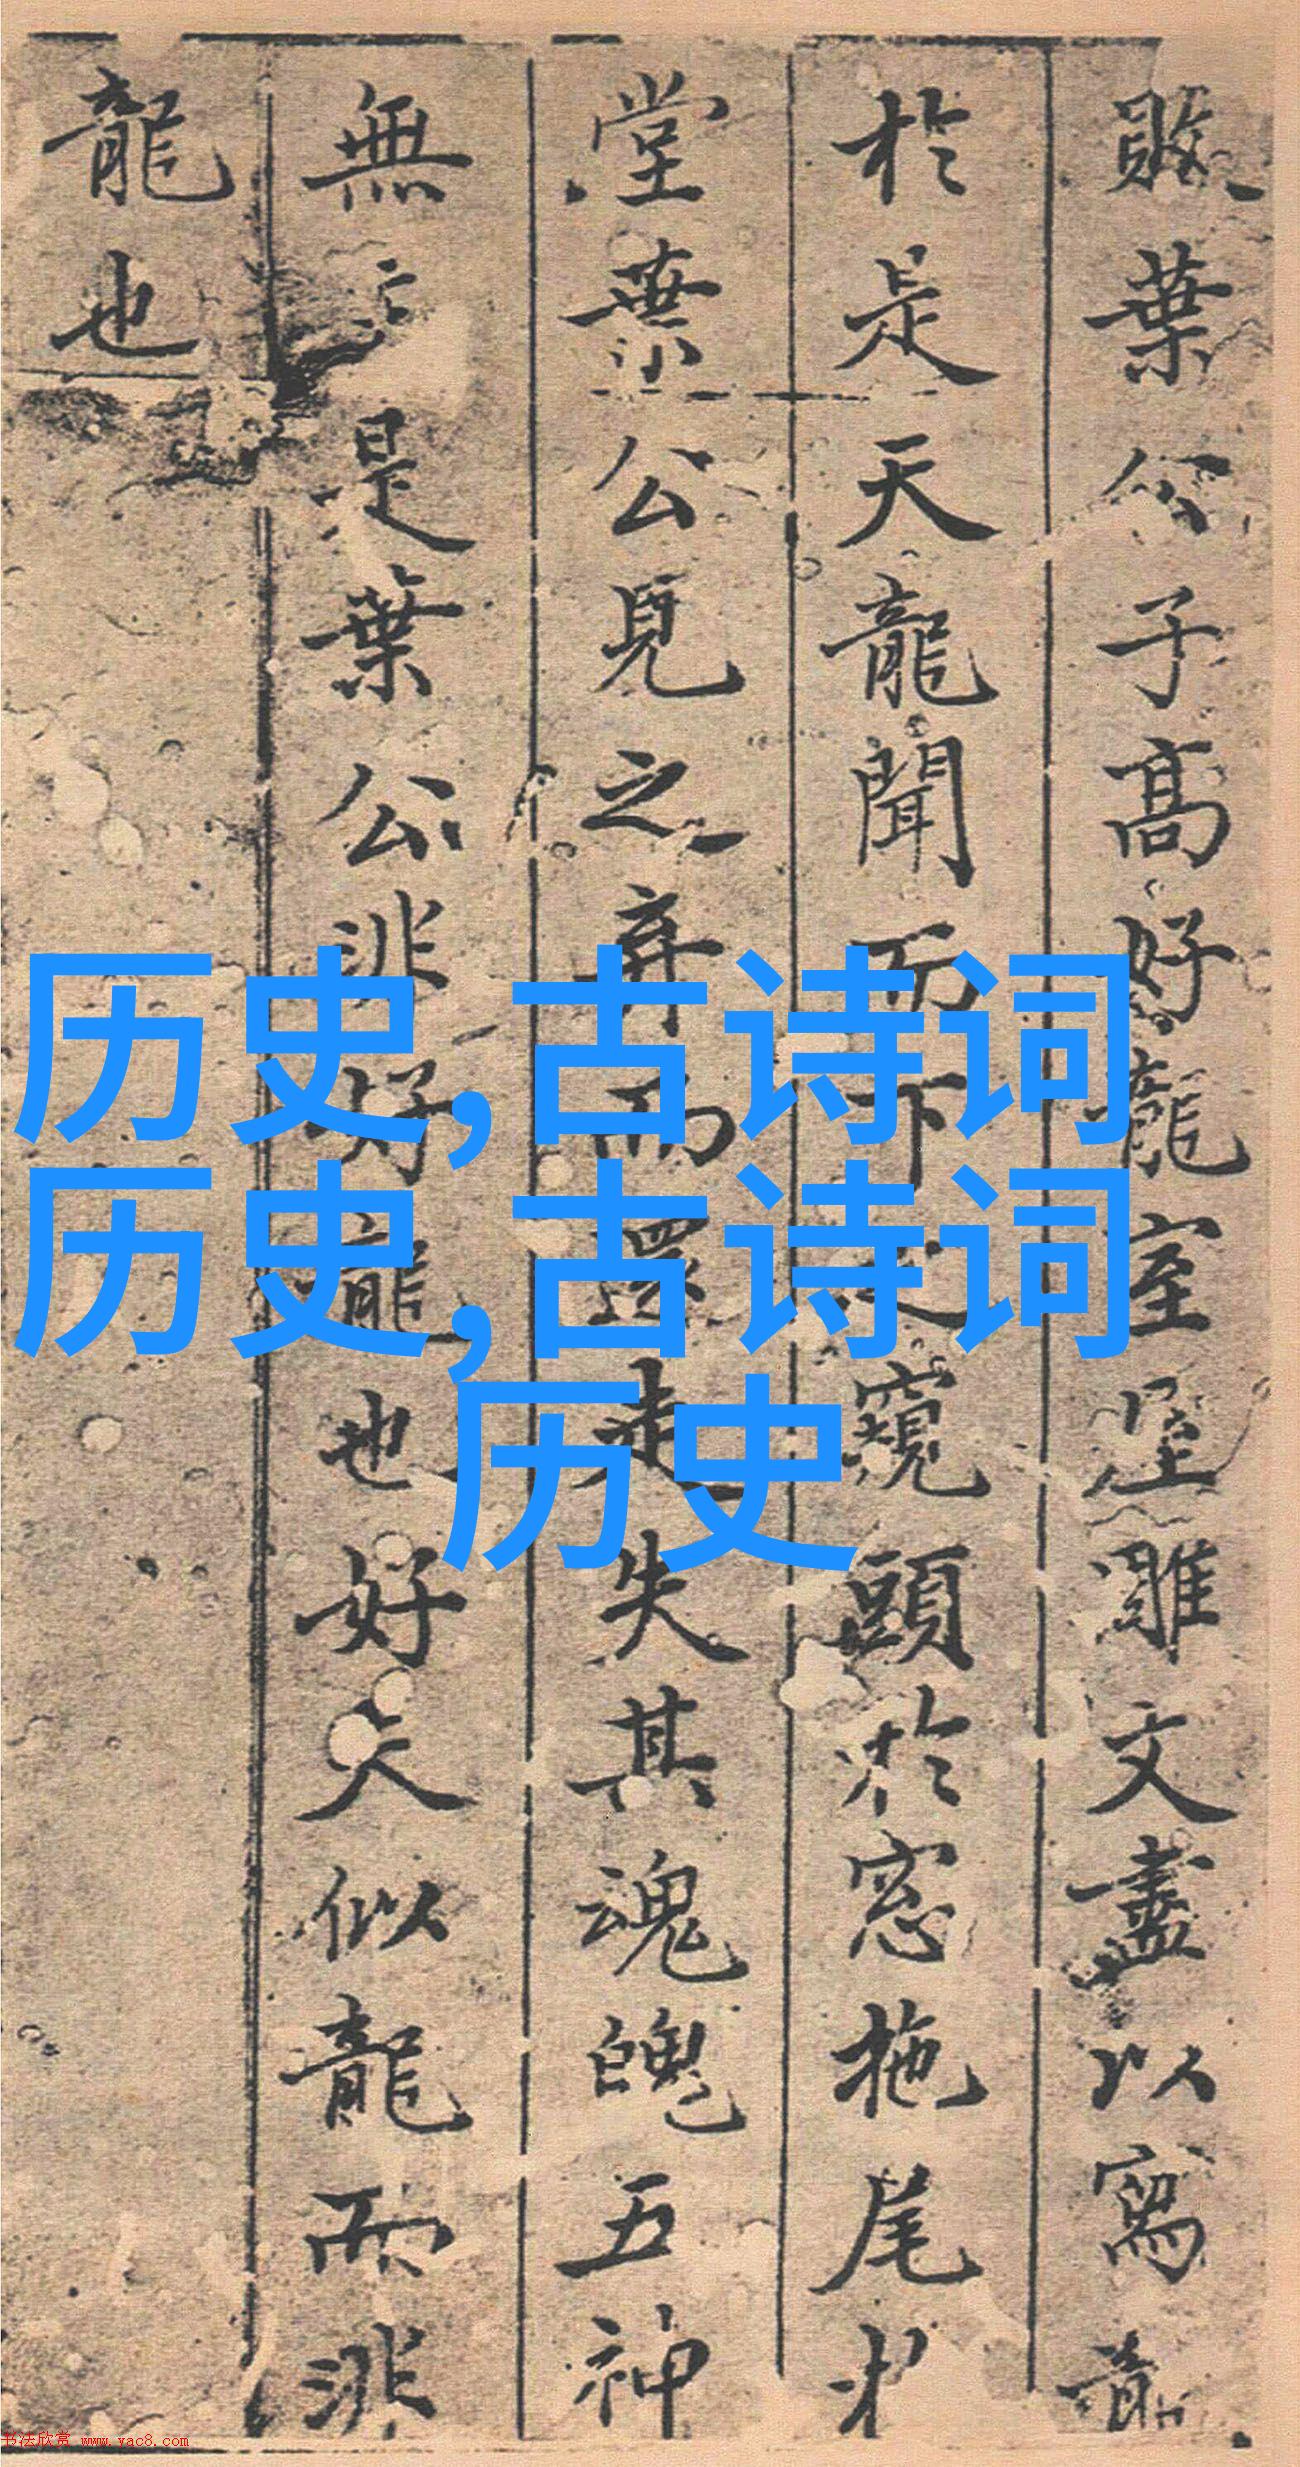 敗葉公子高好龍室屋雕文盡以寫龍
於是天龍聞而下之窺頭於窓拖尾於
堂葉公見之弃而還走失其魂魄五神
無主是葉公非好龍也好夫似龍而非
龍也
历史,古诗词
历史,古诗词
历史
书法欣赏 www.yac8.com